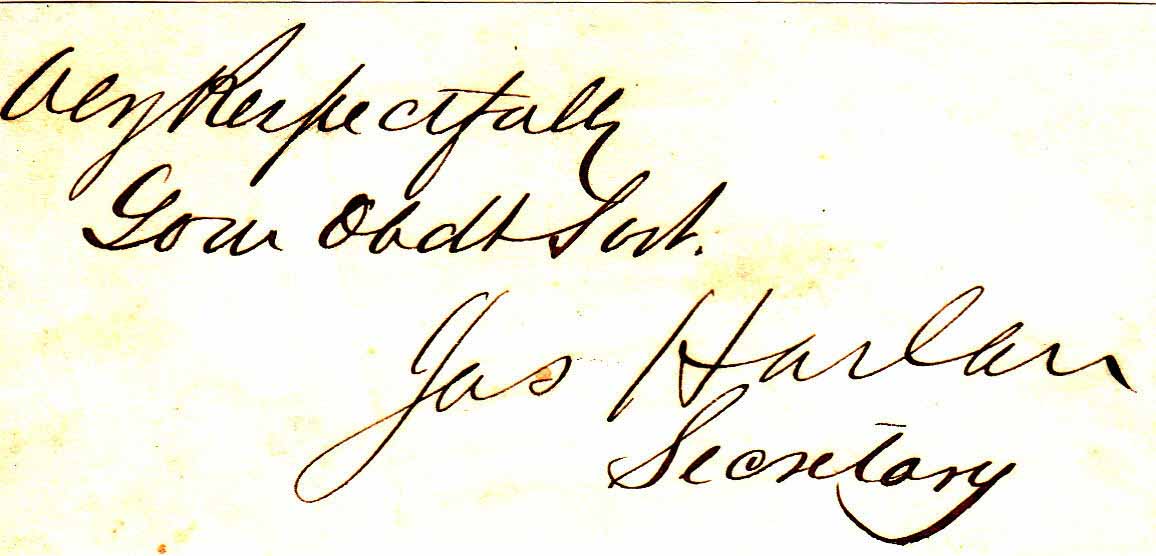 Very Respectfully
Your Obdt Svt.
Jas Harlan
Secretary